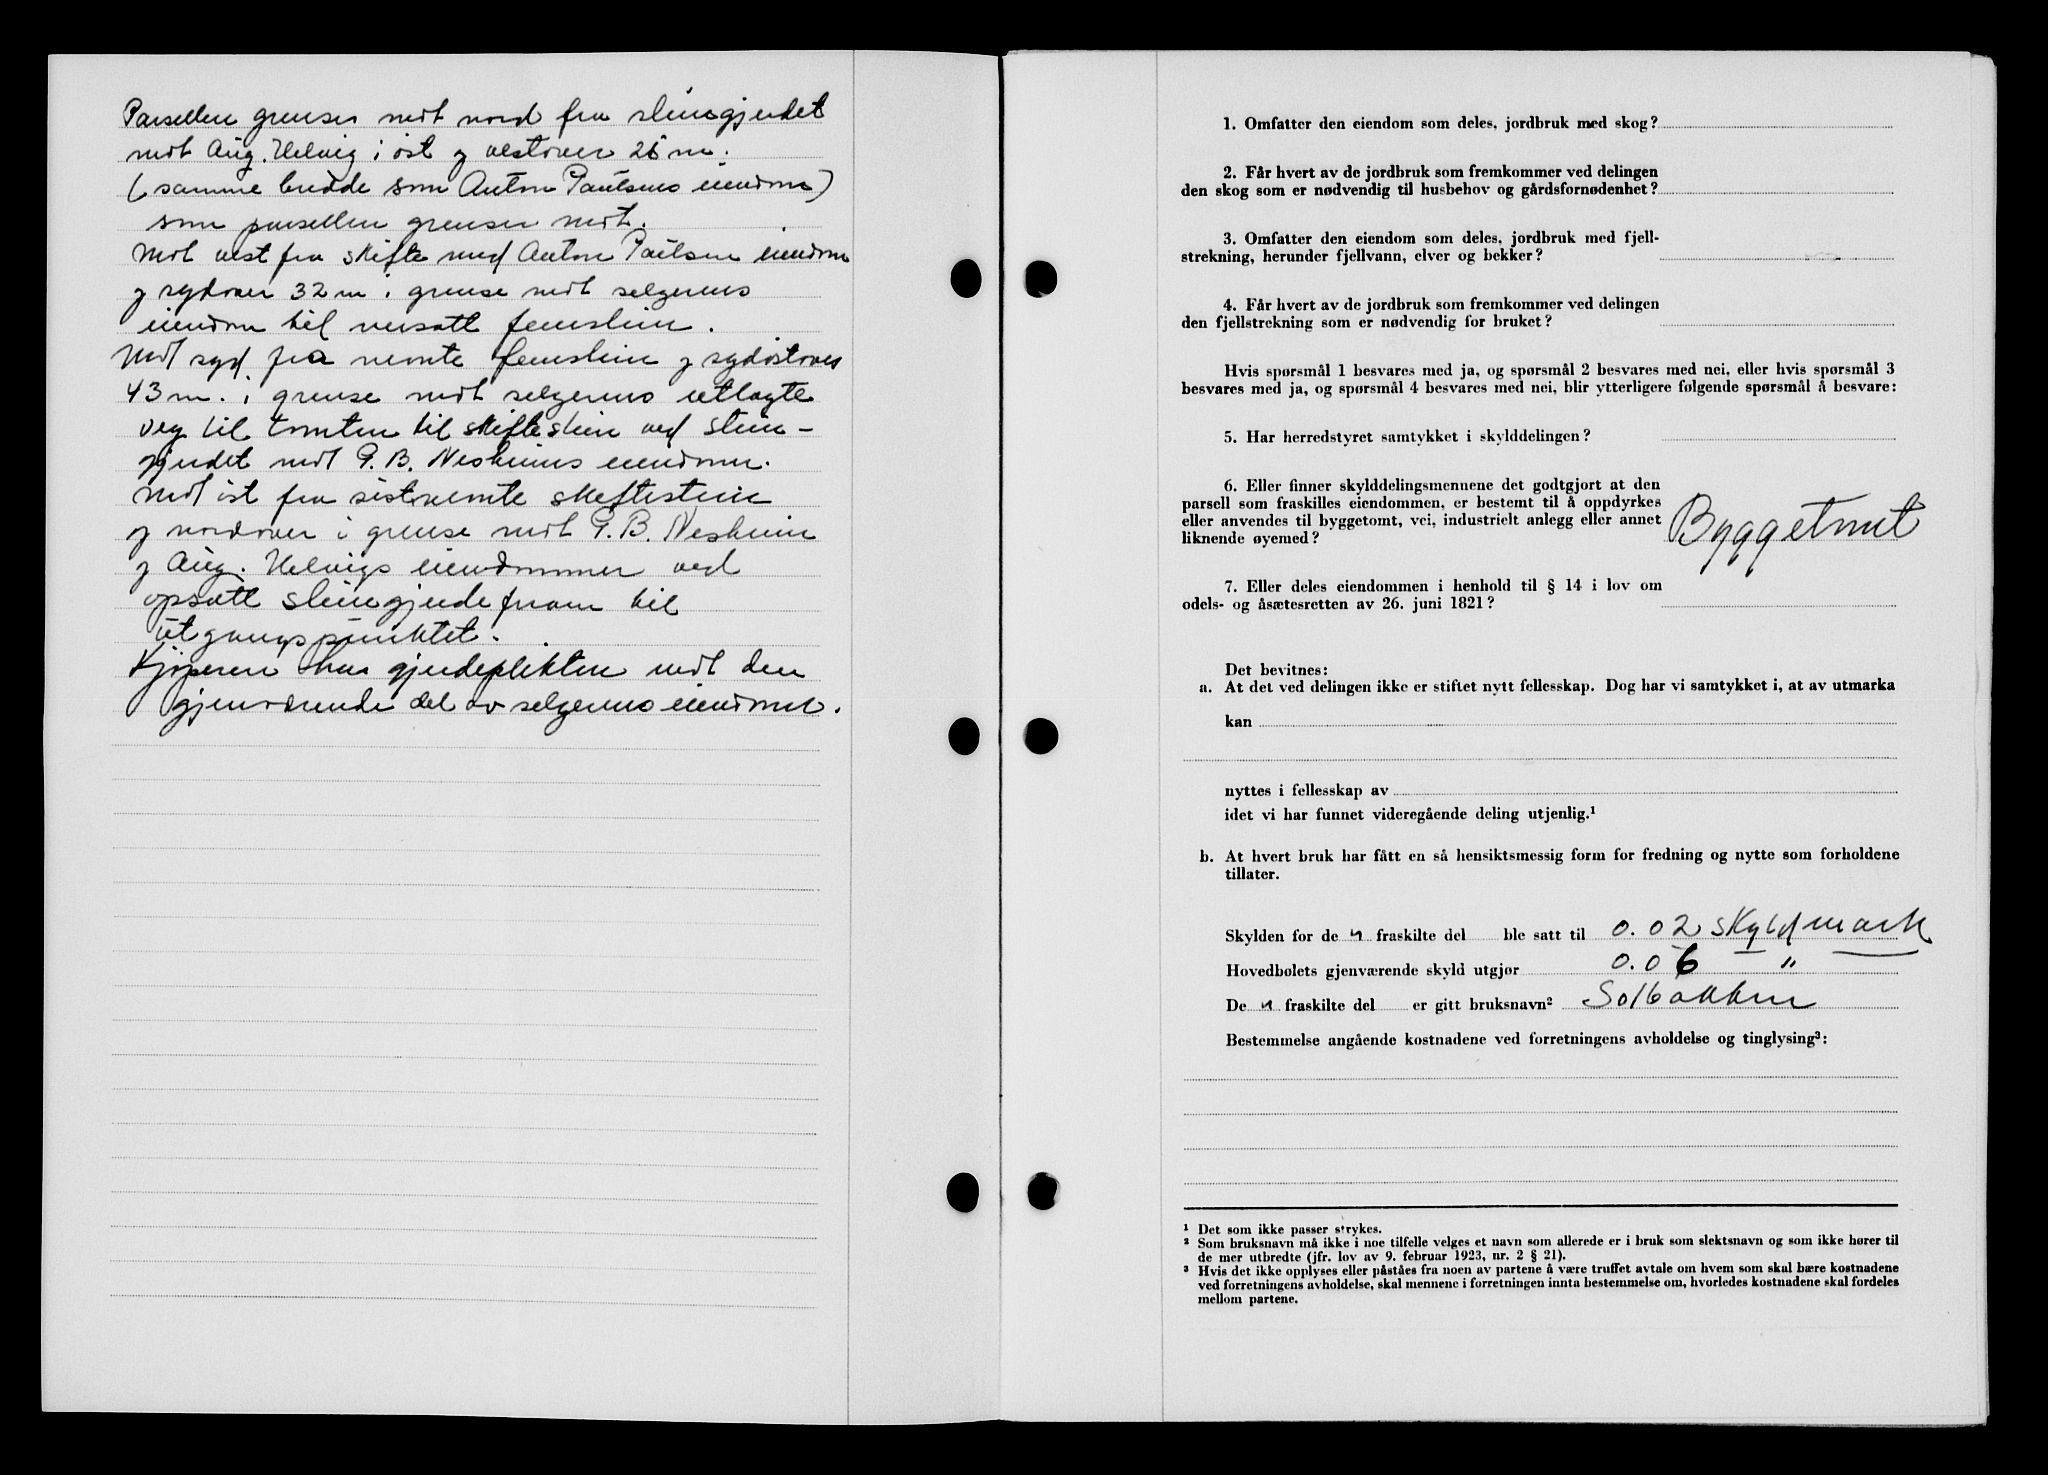 Parsellen grenser mot nord fra steingjerdet
mot Aug. Helvig i øst og vestover 26 m.
(samme bredde som Anton Paulsens eiendom)
som parsellen grenser mot.
Mot vest fra skifte med Anton Paulsen eiendom
og sydover 32 m. i grense mot selgerens
eiendom til nersatt femstein.
Mot syd fra nevnte femstein og sydøstover
43 m. i grense mot selgerens utlagte
veg til tomten til skiftestein ved stein-
gjerdet mot G. B. Nesheims eiendom.
Mot øst fra sistnevnte skiftestein
og nordover i grense mot G. B. Nesheim
og Aug. Helvigs eiendommer ved
opsatt steingjerde fram til
utgangspunktet.
Kjøperen har gjerdeplikten mot den
gjenværende del av selgerens eiendom.
1. Omfatter den eiendom som deles, jordbruk med skog?
2. Får hvert av de jordbruk som fremkommer ved delingen
den skog som er nødvendig til husbehov og gårdsfornødenhet?
3. Omfatter den eiendom som deles, jordbruk med fjell-
strekning, herunder fjellvann, elver og bekker?
4. Får hvert av de jordbruk som fremkommer ved delingen
den fjellstrekning som er nødvendig for bruket?
Hvis spørsmål 1 besvares med ja, og spørsmål 2 besvares med nei, eller hvis spørsmål 3
besvares med ja, og spørsmål 4 besvares med nei, blir ytterligere følgende spørsmål å besvare:
5. Har herredstyret samtykket i skylddelingen?
6. Eller finner skylddelingsmennene det godtgjort at den
parsell som fraskilles eiendommen, er bestemt til å oppdyrkes
eller anvendes til byggetomt, vei, industrielt anlegg eller annet
liknende øyemed? Byggetomt
7. Eller deles eiendommen i henhold til § 14 i lov om
odels- og åsætesretten av 26. juni 1821?
Det bevitnes:
a. At det ved delingen ikke er stiftet nytt fellesskap. Dog har vi samtykket i, at av utmarka
kan
nyttes i fellesskap av
idet vi har funnet videregående deling utjenlig.¹
b. At hvert bruk har fått en så hensiktsmessig form for fredning og nytte som forholdene
tillater.
Skylden for de n fraskilte del ble satt til 0.02 skyldmark
Hovedbølets gjenværende skyld utgjør 0.06 "
De n fraskilte del er gitt bruksnavn² Solbakken
Bestemmelse angående kostnadene ved forretningens avholdelse og tinglysing³:
¹ Det som ikke passer strykes.
² Som bruksnavn må ikke i noe tilfelle velges et navn som allerede er i bruk som slektsnavn og som ikke hører til
de mer utbredte (jfr. lov av 9. februar 1923, nr. 2 § 21).
³ Hvis det ikke opplyses eller påståes fra noen av partene å være truffet avtale om hvem som skal bære kostnadene
ved forretningens avholdelse, skal mennene i forretningen innta bestemmelse om, hvorledes kostnadene skal fordeles
mellom partene.